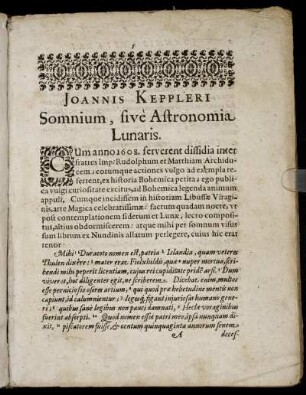 JOANNIS KEPPLERI
Somnium, sivè Astronomia
Lunaris.
CUm anno 1608. ferverent dissidia inter
fratres Imp: Rudolphum et Matthiam Archidu-
cem; eorumque actiones vulgo ad exempla re-
ferrent, ex historia Bohemica petita; ego publi-
ca vulgi curiositate excitus, ad Bohemica legenda animum
appuli. Cumque incidissem in historiam Libussæ Viragi-
nis, arte Magica celebratissimæ: factum quadam nocte, ut
post contemplationem siderum et Lunæ, lecto composi-
tus, altius obdormiscerem: atque mihi per somnum visus
sum librum ex Nundinis allatum perlegere, cuius hic erat
tenor:
Mihi Duracoto nomen est, patria Islandia, quam veteres
Thulen dixere: mater erat Fiolxhildis, quæ nuper mortua, scri-
bendi mihi peperit licentiam, cujus rei cupiditate pridē arsi. Dum
viveret, hoc diligenter egit, ne scriberem. Dicebat enim, multos
esse perniciosos osores artium, qui quod præ hebetudine mentis non
capiunt, id calumnientur; legesq́; figant injuriosas humano gene-
ri; quibus sanè legibus non pauci damnati, Heclæ voraginibus
fuerint absorpti. Quod nomen esset patri meo, ipsa nunquam di-
xit, piscatorem fuisse, & centum quinquaginta annorum senem
A deces-